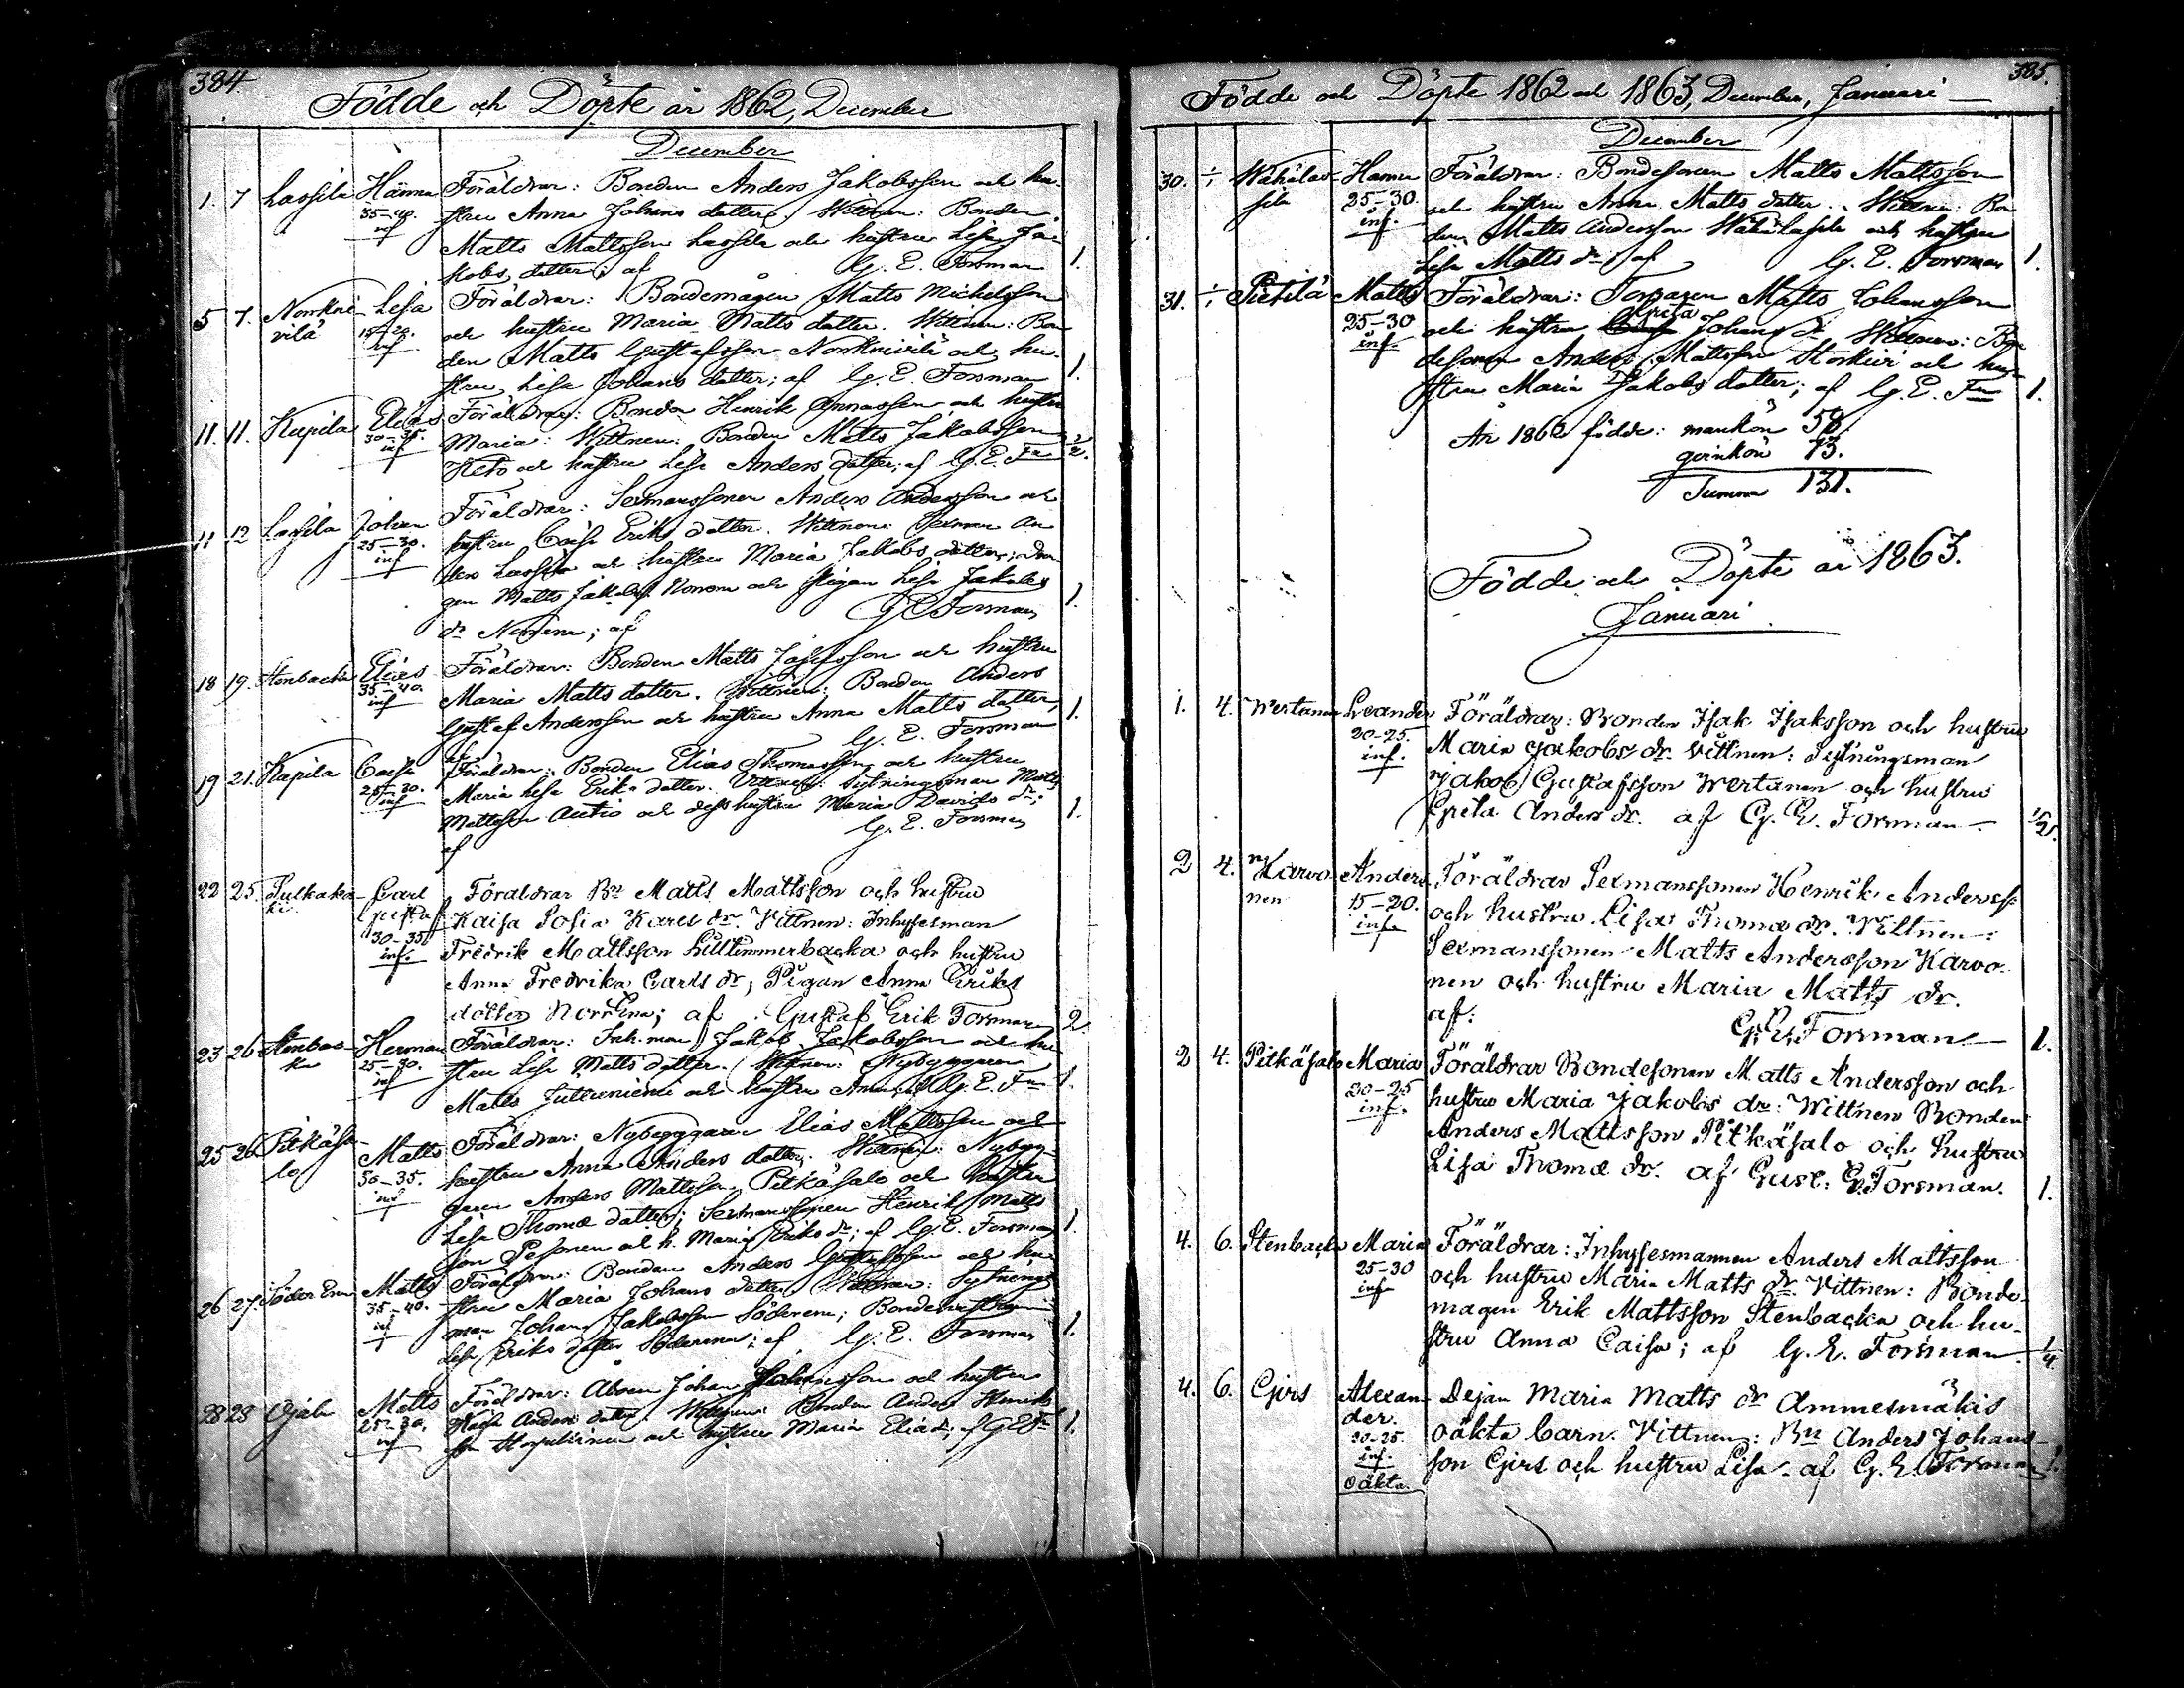 384.
Födde och Döpte år 1862, December
December
1. 7 Lassila Hanna Föräldrar: Bonden Anders Jakobsson och hu-
35-40. stru Anna Johans dotter. Wittnen: Bonden
inf Matts Mattsson Lassila och hustru Lisa Ja-
kobs dotter; af G. E. Forsman 1.
5 7. Lisa Föräldrar: Bondemågen Matts Michelsson
vilä och hustru Maria Matts dotter. Wittnen: Bon-
inf den Matts Gustafsson och hu-
stru Lisa Johans dotter; af G. E. Forsman 1.
11. 11. Kupila Elias Föräldrar: Bonden Henrik och hustru
30-35. Maria: Wittnen: Bonden Matts Jakobsson
inf Keto och hustru Lisa Anders dotter; af G. E. Fn
11 12 Lassila Johan Föräldrar: Sexmanssonen Anders Andersson och
25-30. hustru Caisa Eriks dotter. Wittnen: Sexman An-
inf ders Lassila och hustru Maria Jakobs dotter; drän-
gen Matts Jakobss. och pigan Lisa Jakobs
dr ; af G E Forsman 1.
18 19. Stenbacka Elias Föräldrar: Bonden Matts och hustru
35-40. Maria Matts dotter. Wittnen: Bonden Anders
inf Gustaf Andersson och hustru Anna Matts dotter,
af G. E. Forsman 1.
19 21. Kupila Caisa Föräldrar: Bonden Elias Thomasson och hustru
25-30. Maria Lisa Eriks dotter. Wittnen: Sytningsman Matts
inf Mattsson Autio och dess hustru Maria Davids dr;
af G. E. Forsman 1.
22 25. Carl Föräldrar Bn Matts Mattsson och hustru
Gustaf Kaisa Sofia Karls dr. Vittnen: Inhysesman
30-35 Fredrik Mattsson Lilltimmerbacka och hustru
inf. Anna Fredrika Carls dr, Pigan Anna Eriks
dotter Norrena; af Gustaf Erik Forsman 2
23 26 Stenbac- Herman Föräldrar: Inh.man Jakob Jakobsson och hu-
ka 25-30. stru Lisa Matts dotter. Wittnen: Nybyggaren
inf Matts och hustru Anna; af G. E. Fn 1.
25 26 Pitkäsa- Matts Föräldrar: Nybyggaren Elias Mattsson och
lo 30-35. hustru Anna Anders dotter. Wittnen: Nybyg-
inf garen Anders Mattsson Pitkäsalo och hustru
Lisa Thomæ dotter; Sexmanssonen Henrik Matts
son Pesonen och h. Maria Eriks dr; af G. E. Forsman 1.
26 27. Söder Ena Matts Föräldrar: Bonden Anders Gustafsson och hu-
35-40. stru Maria Johans dotter. Wittnen: Sytnings-
inf man Johan Jakobsson Söderena; Bondehustrun
Lisa Eriks dotter Söderena; af G. E. Forsman 1.
28 28 Matts Föräldrar: Johan Johansson och hustru
25-30. Anders dotter. Wittnen: Bonden Anders Henriks
inf son och hustru Maria Elias d; af G E Fn 1.
385.
Födde och Döpte 1862 och 1863, December, Januari
December
30. ÷ Wähälas- Hanna Föräldrar: Bondesonen Matts Mattsson
sila 25-30. och hustru Anna Matts dotter. Wittnen: Bon-
inf. den Matts Andersson Wähälassila och hustru
Lisa Matts dr; af G. E. Forsman 1.
31. ÷ Pietilä Matts Föräldrar: Torparen Matts Johansson
25-30 och hustru Greta Johans dr Wittnen: Bon-
inf. desonen Anders Mattsson Storkivi och hu-
stru Maria Jakobs dotter; af G. E. Fn 1.
År 1862 födde: mankön 58.
qvinkön 73.
Summa 131.
Födde och Döpte år 1863.
Januari
1. 4. Wertanen Leander Föräldrar: Bonden Isak Isaksson och hustru
20-25. Maria Jakobs dr. Vittnen: Sytningsman
inf. Jakob Gustafsson Wertanen och hustru
Greta Anders dr. af G. E. Forsman 1/2.
2 4. Karvo- Anders Föräldrar Sexmanssonen Henrik Anderss:
nen 15-20. och hustru Lisa Thomæ dr. Vittnen:
inf. Sexmanssonen Matts Andersson Karvo-
nen och hustru Maria Matts dr.
af: G. E. Forsman 1.
2 4. Pitkäsalo Maria Föräldrar Bondesonen Matts Andersson och
20-25 hustru Maria Jakobs dr: Wittnen Bonden
inf. Anders Mattsson Pitkäsalo och hustru
Lisa Thomæ dr. af Gust: E. Forsman. 1.
4. 6. Stenbacka Maria Föräldrar: Inhysesmannen Anders Mattsson
25-30 och hustru Maria Matts dr. Vittnen: Bonde-
inf. mågen Erik Mattsson Stenbacka och hu-
stru Anna Caisa; af G. E. Forsman. 1/4
4. 6. Girs Alexan- Dejan Maria Matts dr Ammesmäkis
der. oäkta barn. Vittnen: Bn Anders Johans-
20-25. son Girs och hustru Lisa. af G. E. Forsman 1.
inf.
oäkta